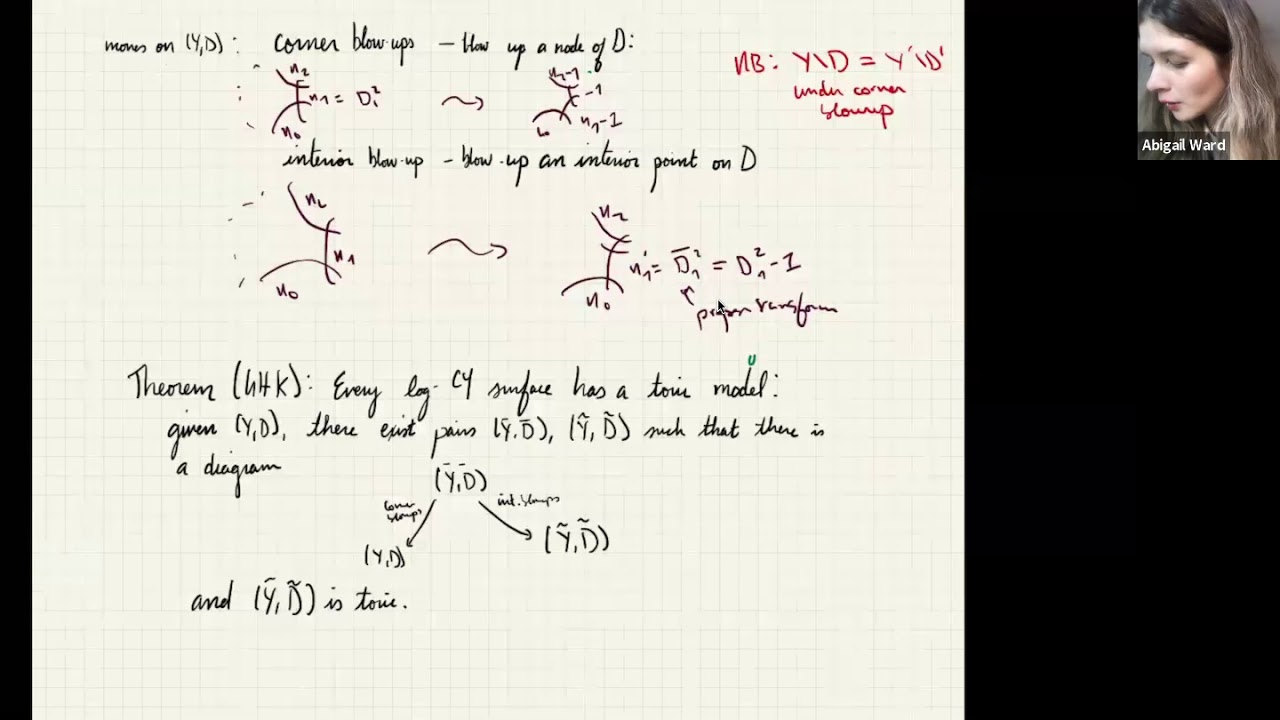 moves on (Y,D): corner blow-ups - blow up a node of D:
NB: Y\D = Y'\D'
under corner
blowup
n₂
n₁ = D₁²
n₀
n₂-1
-1
n₁-1
interior blow-up - blow-up an interior point on D
n₂
n₁
n₀
n₂
n₁' = D̄₁² = D₁² - 1
n₀
proper transform
Theorem (GHK): Every log-CY surface has a toric model:
given (Y,D), there exist pairs (Ȳ,D̄), (Ỹ,D̃) such that there is
a diagram
(Ȳ,D̄)
corner
blowups
int. blowups
(Y,D)
(Ỹ,D̃)
and (Ỹ,D̃) is toric.
Abigail Ward